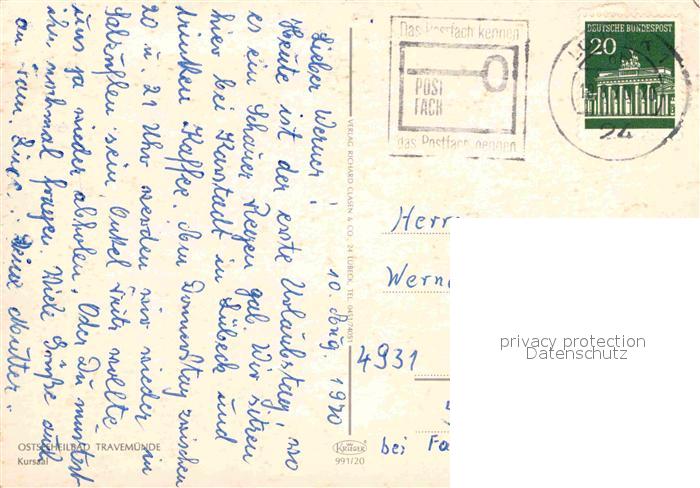 10. Aug. 1970
Lieber Werner!
Heute ist der erste Urlaubstag, wo
es ein Schauer Regen gab. Wir sitzen
hier bei Karstadt in Lübeck und
trinken Kaffee. Am Donnerstag zwischen
20 u. 21 Uhr werden wir wieder in
Salzuflen sein. Onkel Fritz wollte
uns ja wieder abholen. Oder Du müsstest
ihn nochmal fragen. Viele Grüße auch
an Deine Mutter.
OSTSEEHEILBAD TRAVEMÜNDE
Kursaal
VERLAG RICHARD CLASEN & CO. 24 LÜBECK, TEL. 0451/74051
KRÜGER
991/20
Das Postfach kennen
POST
FACH
das Postfach nennen
DEUTSCHE BUNDESPOST
20
24
Herr
Wern
4931
bei Fa
privacy protection
Datenschutz